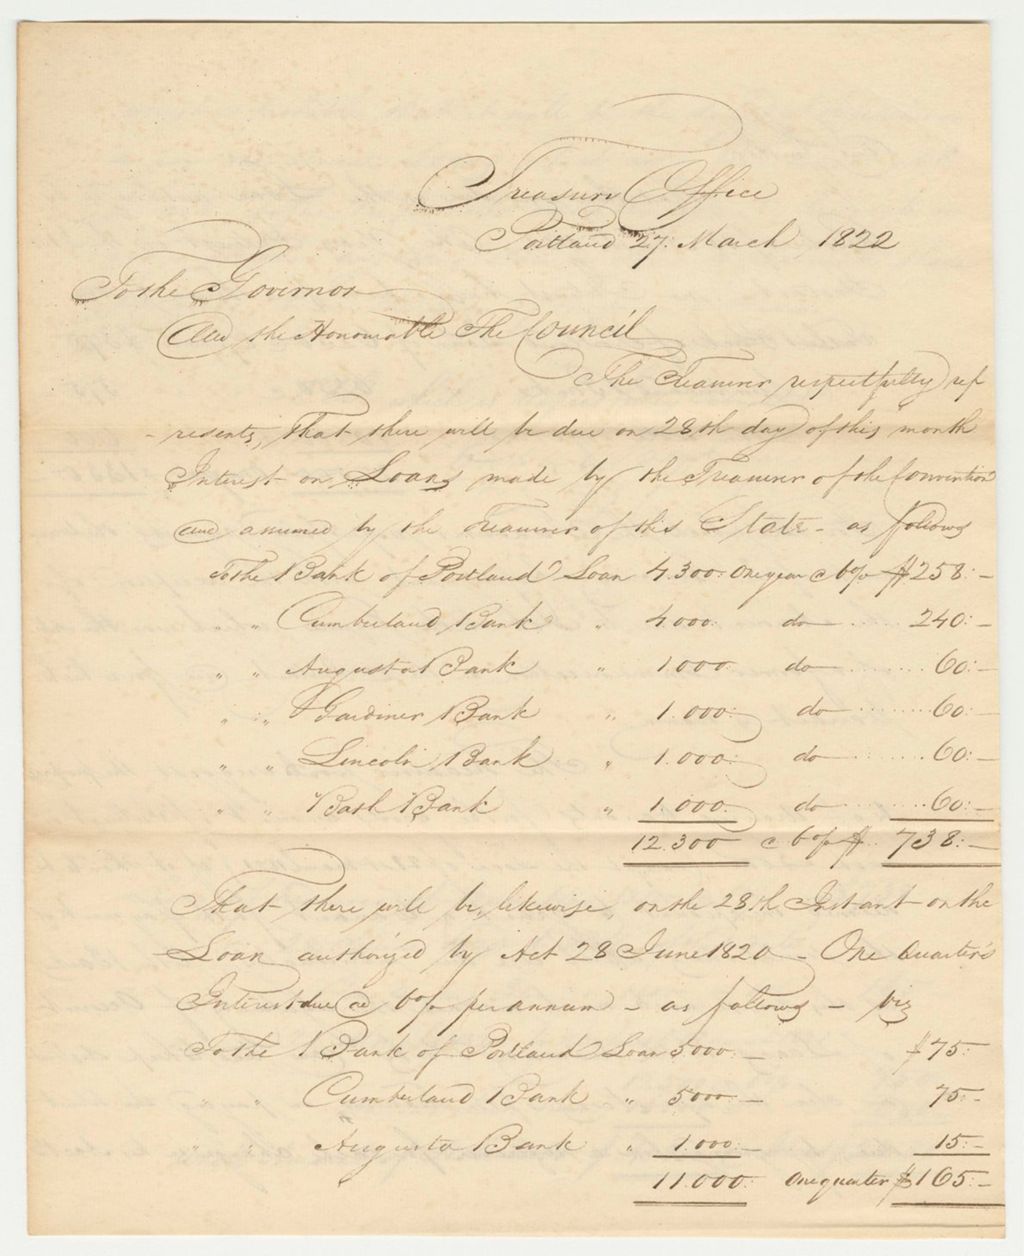 Treasury Office
Portland 27. March 1822
To the Governor
And the Honourable The Council
The Treasurer respectfully rep
- resents, That there will be due on 28th day of this month
Interest on Loans made by the Treasurer of the Convention
and assumed by the Treasurer of this State - as follows
To the Bank of Portland Loan 4.300: One year @ 6 o/o $258:-
" " Cumberland Bank " 4.000: do ..... 240:-
" " Augusta Bank " 1.000: do ..... 60:-
" " Gardiner Bank " 1.000: do ..... 60:-
" " Lincoln Bank " 1.000: do ..... 60:-
" " Bath Bank " 1.000: do ..... 60:-
12.300 @ 6 o/o $.. 738:-
That there will be, likewise on the 28th Instant on the
Loan authorized by Act 28 June 1820 - One Quarter's
Interest due @ 6 o/o per annum - as follows - viz
To the Bank of Portland Loan 5000:- $75:-
" " Cumberland Bank " 5000:- 75:-
" " Augusta Bank " 1.000:- 15:-
11.000: One quarter $165:-